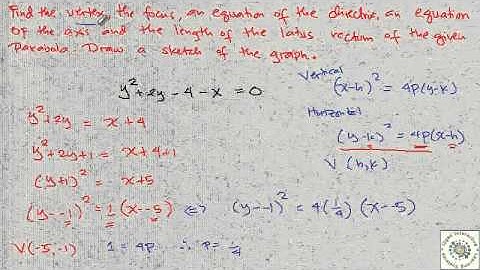 Find the vertex, the focus, an equation of the directrix, an equation
of the axis and the length of the latus rectum of the given
Parabola. Draw a sketch of the graph.
y²+2y-4-x = 0
Vertical
(x-h)² = 4p(y-k)
Horizontal
(y-k)² = 4p(x-h)
V (h,k)
y²+2y = x+4
y²+2y+1 = x+4+1
(y+1)² = x+5
(y--1)² = 1(x--5) ⇔ (y--1)² = 4(1/4)(x--5)
V(-5,-1) 1 = 4p ∴ p = 1/4